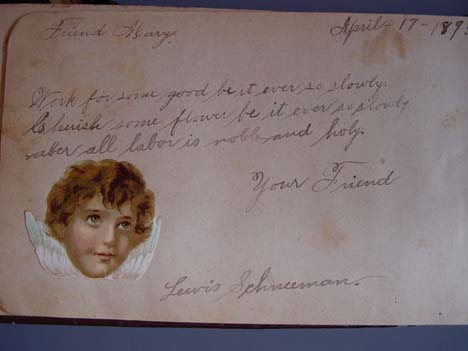 Friend Mary.
April- 17 - 189
Work for some good be it ever so slowly
Cherish some flower be it ever so slowly
raber all labor is noble and holy.
Your Friend
Lewis Schneeman.